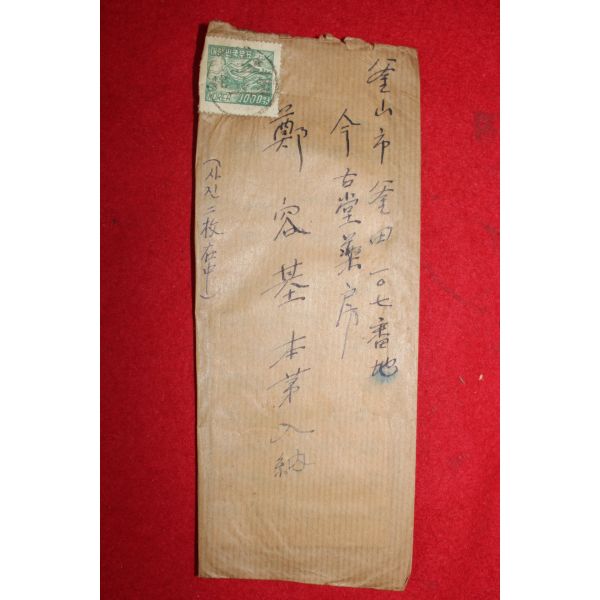 釜山市 釜田 一〇七番地
今古堂藥房
鄭容基 本第入納
(사진 二枚在中)
대한민국우표
1000